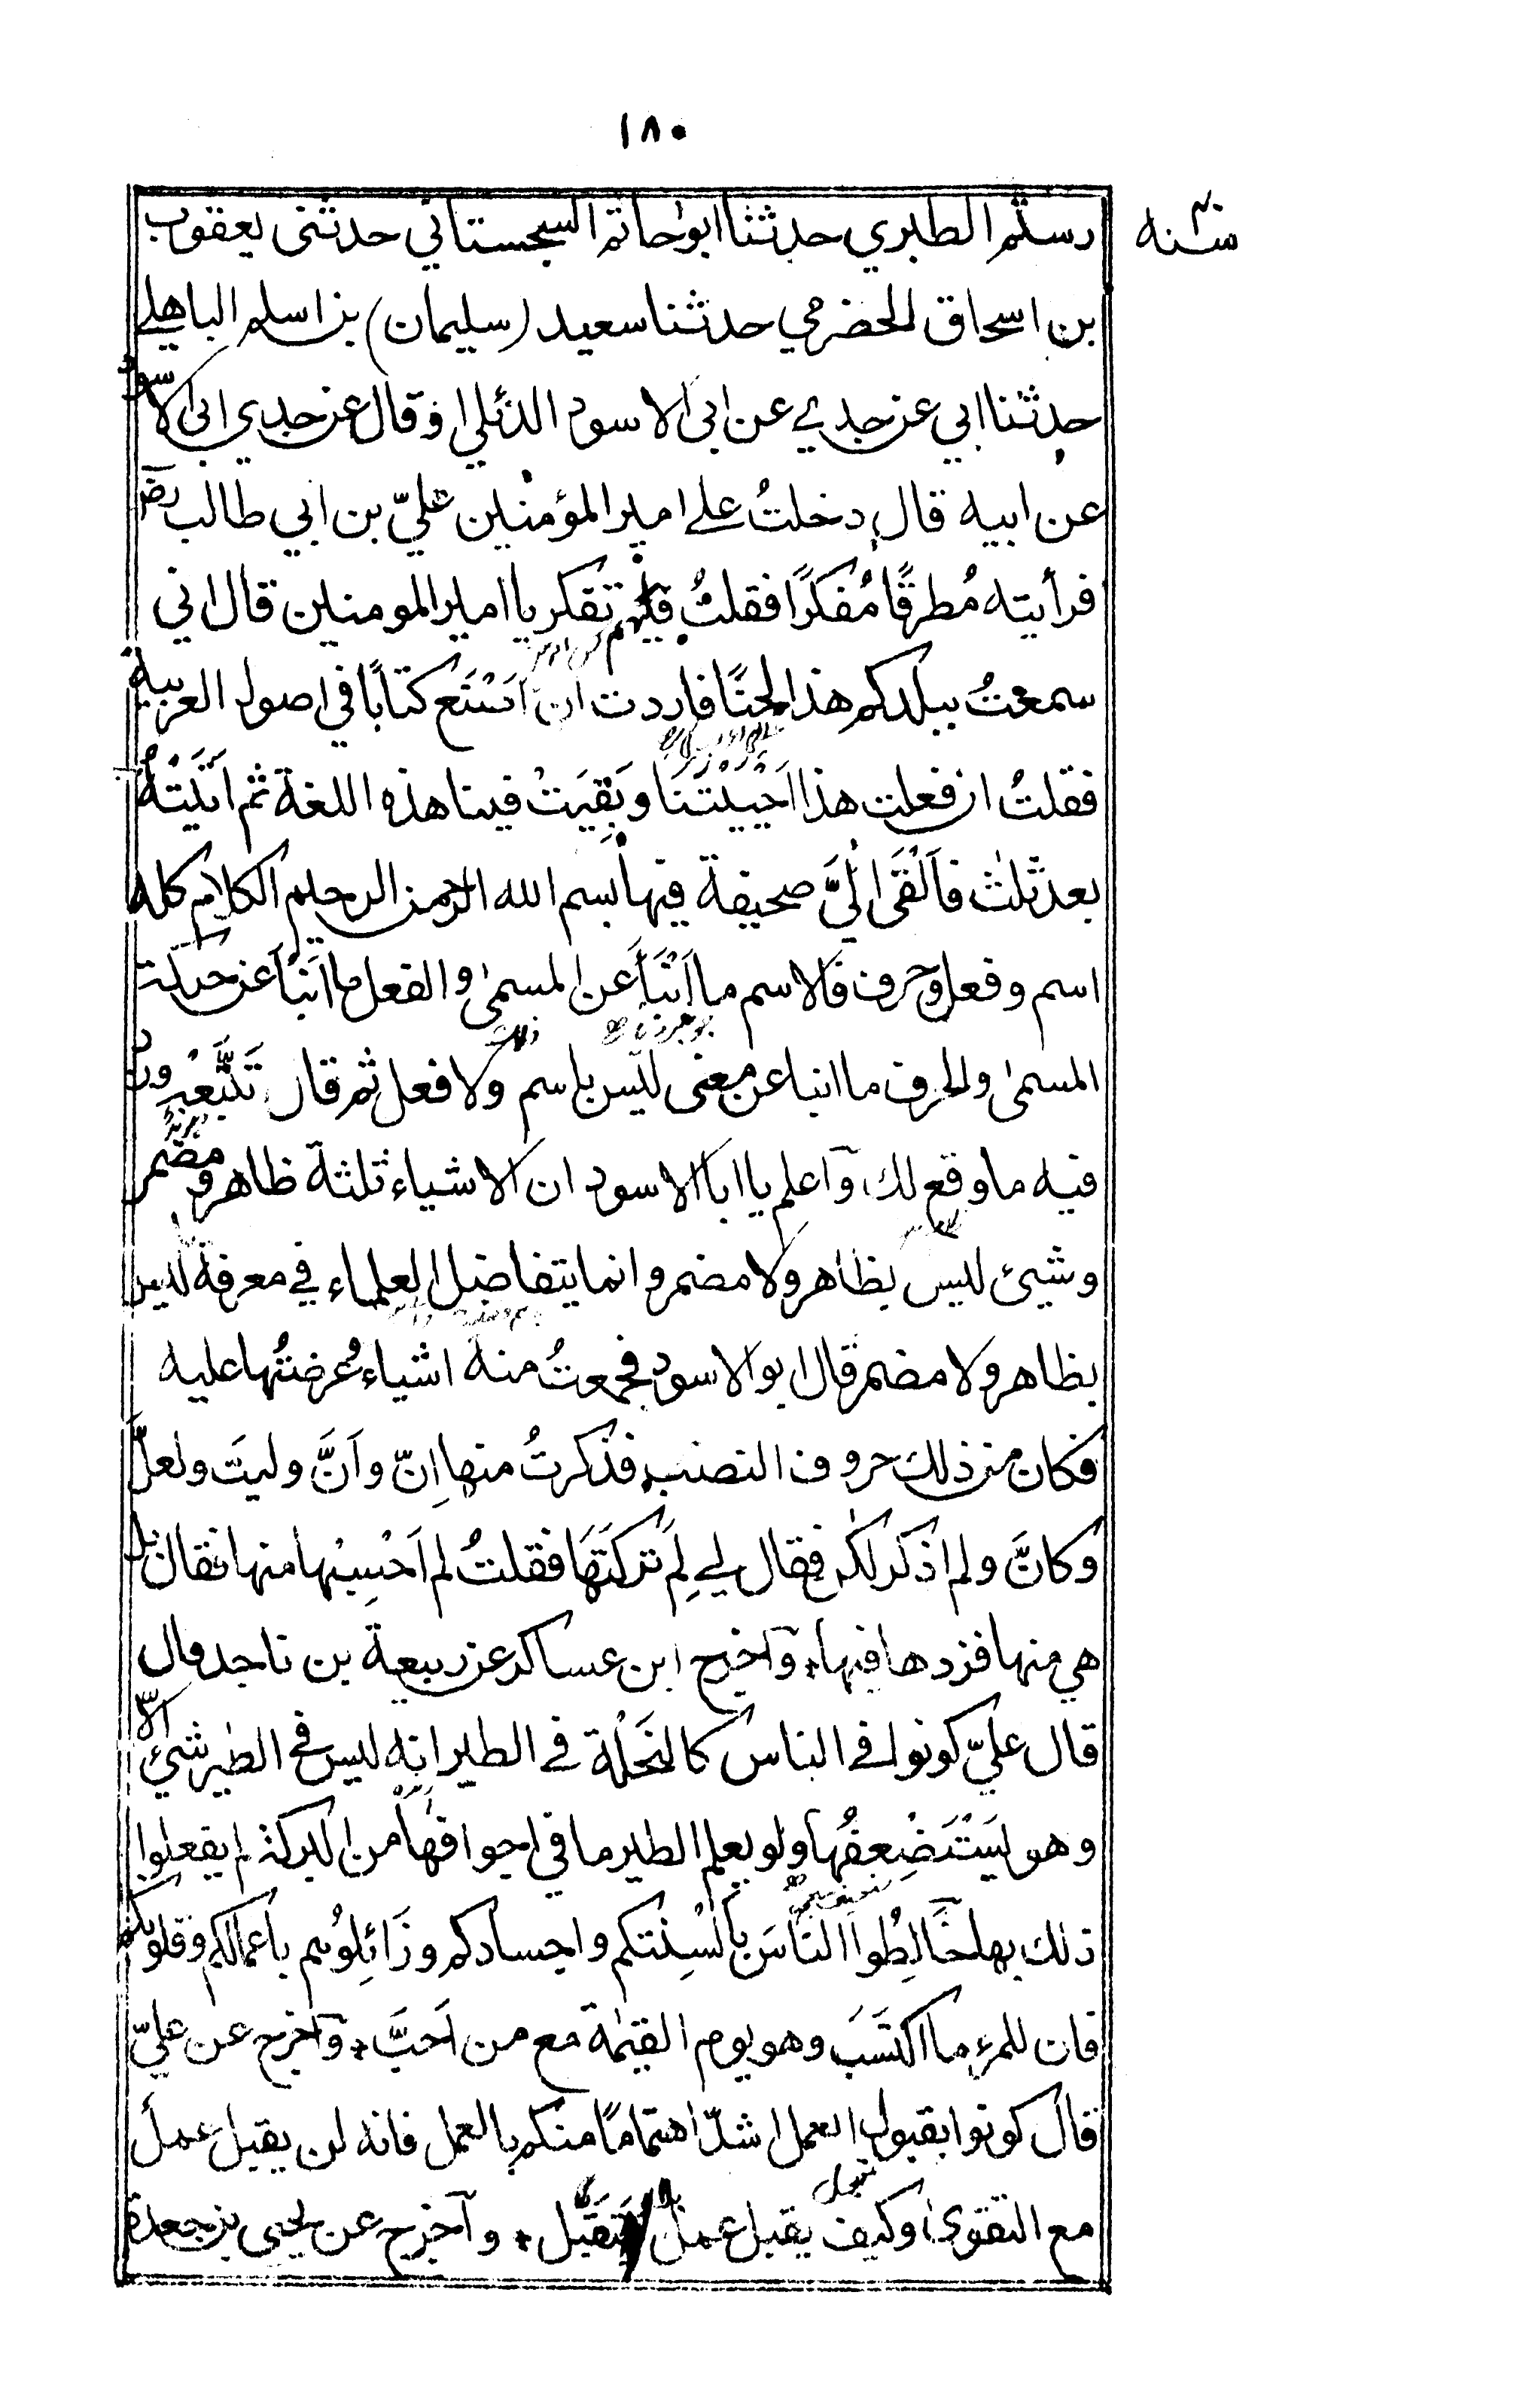 ١٨٠
رستم الطبري حدثنا ابو حاتم السجستاني حدثنى يعقوب
بن اسحاق الحضرمي حدثنا سعيد (سليمان) بن اسلم الباهلي
حدثنا ابي عن جدي عن ابى الاسود الدئلي او قال عن جدي ابى الاسود
عن ابيه قال دخلتُ على امير المؤمنين عليّ بن ابي طالب رضـ
فرأيته مُطرقًا مُفكرًا فقلتُ فيم تفكر يا امير المومنين قال اني
سمعتُ ببلدكم هذا لحنًا فاردت ان اصنع كتابًا في اصول العربية
فقلتُ ان فعلت هذا اَحْيَيْتَنَا وبَقِيَتْ فينا هذه اللغة ثم اَتَيْتُهُ
بعد ثلث فاَلْقَى اليَّ صحيفة فيها بسم الله الرحمن الرحيم الكلام كله
اسم وفعل وحرف فالاسم ما اَنْبَأَ عن المسمى والفعل ما اَنْبَأ عن حركة
المسمى والحرف ما انبا عن معنى ليس باسم ولا فعل ثم قال
فيه ما وقع لك، وَاعلم يا ابا الاسود ان الاشياء ثلثة ظاهر ومضمر
وشيئ ليس بظاهر ولا مضمر وانما يتفاضل العلماء في معرفة ليس
بظاهر ولا مضمر قال ابو الاسود فجمعتُ منه اشياء وعرضتُها عليه
فكان من ذلك حروف النصب فذكرتُ منها اِنّ واَنَّ وليتَ ولعلَّ
وكانَّ ولم اذكر لكن فقال لي لِمَ تركتَهَا فقلتُ لم اَحْسِبْها منها فقال بل
هي منها فزدها فيها، وَاخرج ابن عساكر عن ربيعة بن ناجد قال
قال عليّ كونوا في الناس كالنَحْلَة في الطير انه ليس في الطير شئ الّا
وهو يَسْتَضْعِفُها ولو يعلم الطير ما في اجوافها من البركة لم يفعلوا
ذلك بها خَالِطُوا النَّاسَ بِأَلْسِنَتكم واجسادكم وزَائِلُوهم باعمالكم وقلوبكم
فان للمرءِ ما اكتَسَبَ وهو يوم القيٰمة مع من اَحَبَّ، وَاخرج عن عليّ
قال كونوا بقبول العمل اشدّ اهتمامًا منكم بالعمل فانه لن يقبل عمل
مع التقوى وكيف يقبل عمل يُتَقَبَّل، وَاخرج عن يحيى بن جعدة